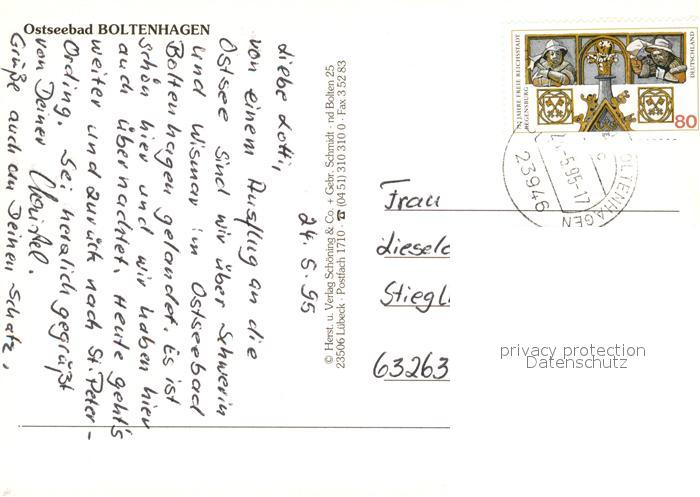 Ostseebad BOLTENHAGEN
24.5.95
Liebe Lotti,
von einem Ausflug an die
Ostsee sind wir über Schwerin
und Wismar im Ostseebad
Boltenhagen gelandet. Es ist
schön hier und wir haben hier
auch übernachtet. Heute geht's
weiter und zurück nach St. Peter-
Ording. Sei herzlich gegrüßt
von Deiner Christel.
Grüße auch an Deinen Schatz.
© Herst. u. Verlag Schöning & Co. + Gebr. Schmidt · nd Bolten 25
23506 Lübeck · Postfach 1710 · ☎ (04 51) 310 310 0 · Fax 3 52 83
JAHRE FREIE REICHSSTADT
REGENSBURG
DEUTSCHLAND
80
5.95-17
23946
OLTENHAGEN
Frau
Liesel
Stiegl
63263
privacy protection
Datenschutz